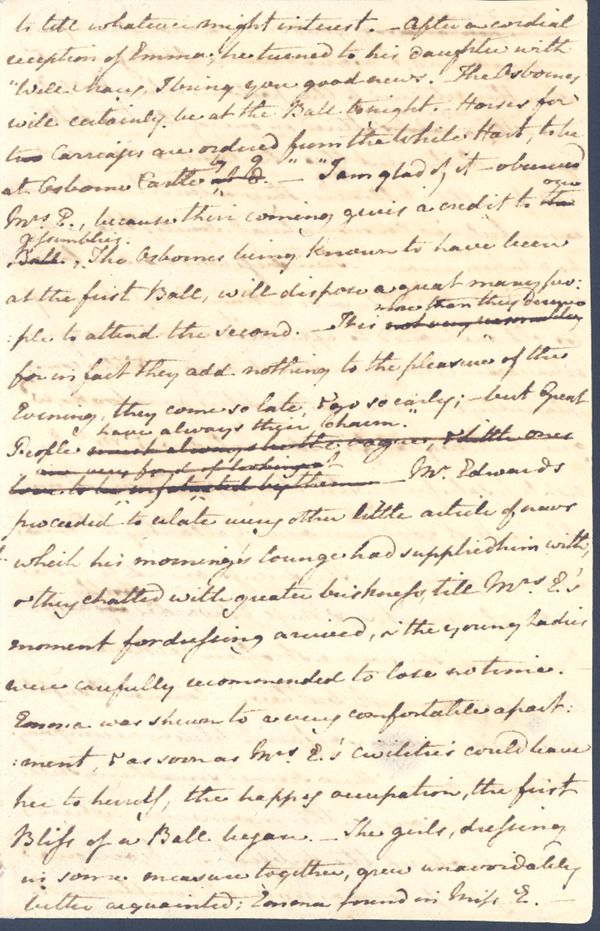 to tell whatever might interest. – After a cordial
reception of Emma, he turned to his daughter with
"Well Mary, I bring you good news. – The Osbornes
will certainly be at the Ball tonight. – Horses for
two Carriages are ordered from the White Hart, to be
at Osborne Castle by 9. –" "I am glad of it – observed
Mrs E., because their coming gives a credit to our
Assemblies.
Ball. The Osbornes being known to have been
at the first Ball, will dispose a great many peo:
more than they deserve
:ple to attend the second. – It is not very reasonable
for in fact they add nothing to the pleasure of the
Evening, they come so late, & go so early; – but Great
have always their charm."
People must always
are very fond of looking at
love to be infatuated by them – Mr. Edwards
proceeded to relate every other little article of news
which his morning's lounge had supplied him with,
& they chatted with greater briskness, till Mrs E.'s
moment for dressing arrived, & the young Ladies
were carefully recommended to lose no time. –
Emma was shewn to a very comfortable apart:
:ment, & as soon as Mrs E.'s civilities could leave
her to herself, the happy occupation, the first
Bliss of a Ball began. – The girls, dressing
in some measure together, grew unavoidably
better acquainted; Emma found in Miss E. –